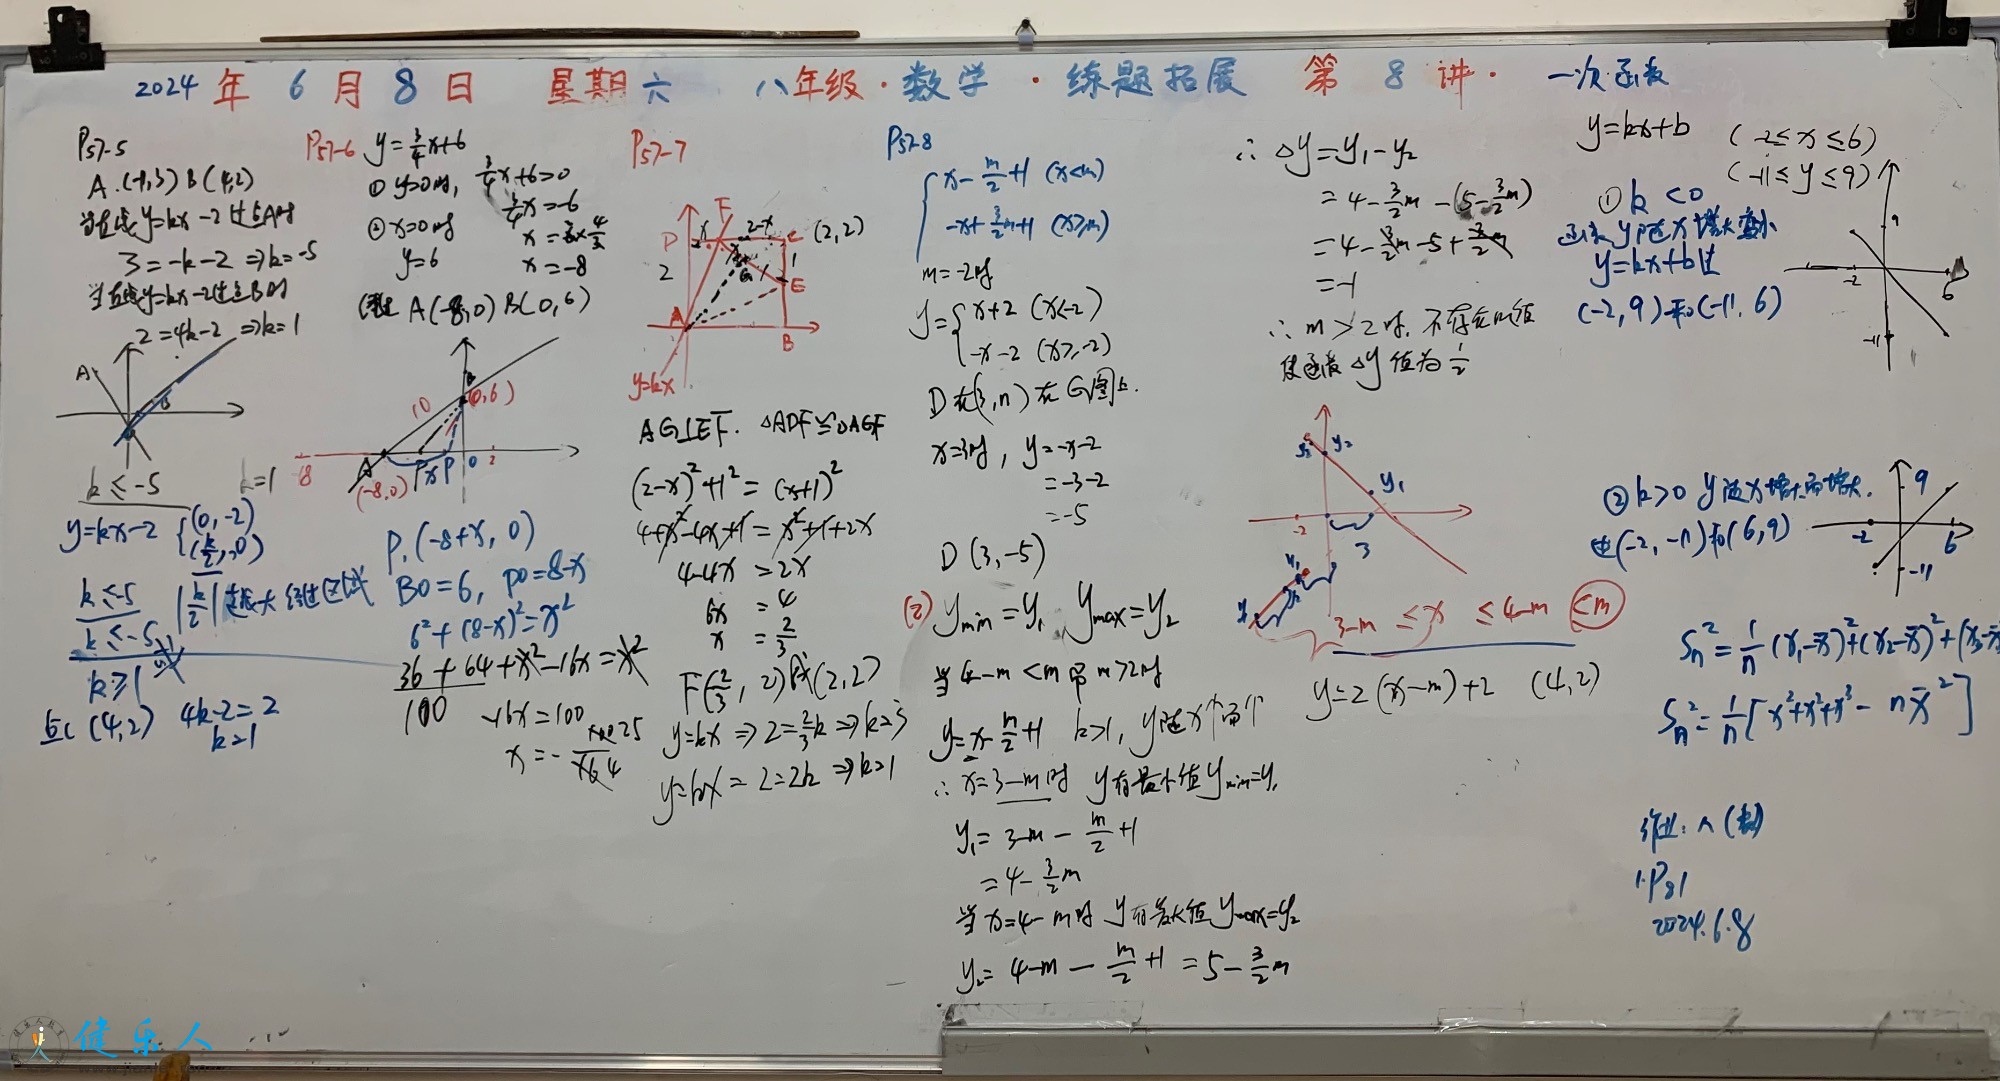 2024年6月8日 星期六 八年级·数学·练题拓展 第8讲·一次函数
P57-5
A.(-1,3) B(4,2)
当直线y=kx-2过点A时
3=-k-2 ⇒k=-5
当直线y=kx-2过点B时
2=4k-2 ⇒k=1
A
B
k≤-5
k=1
y=kx-2 {(0,-2)
k≤-5
k≤-5
k≥1
(4,2) 4k-2=2
k=1
P57-6 y=3/4x+6
① y=0时, 3/4x+6=0
3/4x=-6
② x=0时
y=6
x=-8
A(-8,0) B(0,6)
10
B
(0,6)
-8
A
(-8,0)
P
x
P
0
2
P.(-8+x, 0)
BO=6, PO=8-x
6²+(8-x)²=x²
36+64+x²-16x=x²
100
-16x=100
P57-7
F
D
x
2-x
C
(2,2)
2
1
G
E
A
B
y=kx
AG⊥EF. △ADF≌△AGF
(2-x)²+1²=(x+1)²
4+x²-4x+1=x²+1+2x
4-4x=2x
6x=4
x=2/3
F(2/3, 2)或(2,2)
y=kx ⇒2=2/3k ⇒k=3
y=kx = 2=2k ⇒k=1
P57-8
{x-m/2+1 (x<m)
-x+3/2m+1 (x≥m)
m=-2时
y={x+2 (x<-2)
-x-2 (x≥-2)
D在(3,n)在G图上.
x=3时, y=-x-2
=-3-2
=-5
D(3,-5)
(2) ymin=y₁ ymax=y₂
当4-m<m即m>2时
y=x-m/2+1 k>1, y随x个而个
∴x=3-m时 y有最小值ymin=y₁
y₁=3-m-m/2+1
=4-3/2m
当x=4-m时 y有最大值ymax=y₂
y₂=4-m-m/2+1=5-3/2m
∴△y=y₁-y₂
=4-3/2m-(5-3/2m)
=4-3/2m-5+3/2m
=-1
∴m>2时,不存在m值
使函数△y值为1/2
y₂
y₁
-2
3
3-m≤x≤4-m <m
y=2(x-m)+2 (4,2)
y=kx+b
(-2≤x≤6)
(-11≤y≤9)
① k<0
函数y随x增大变小
y=kx+b过
(-2,9)和(-11,6)
9
-2
6
-11
② k>0 y随x增大而增大.
过(-2,-11)和(6,9)
9
-2
6
-11
Sn²=1/n(x₁-x̄)²+(x₂-x̄)²+(x₃-x̄
Sn²=1/n[x²+x²+x³-nx̄²]
作业:
1.P81
2024.6.8
健乐人